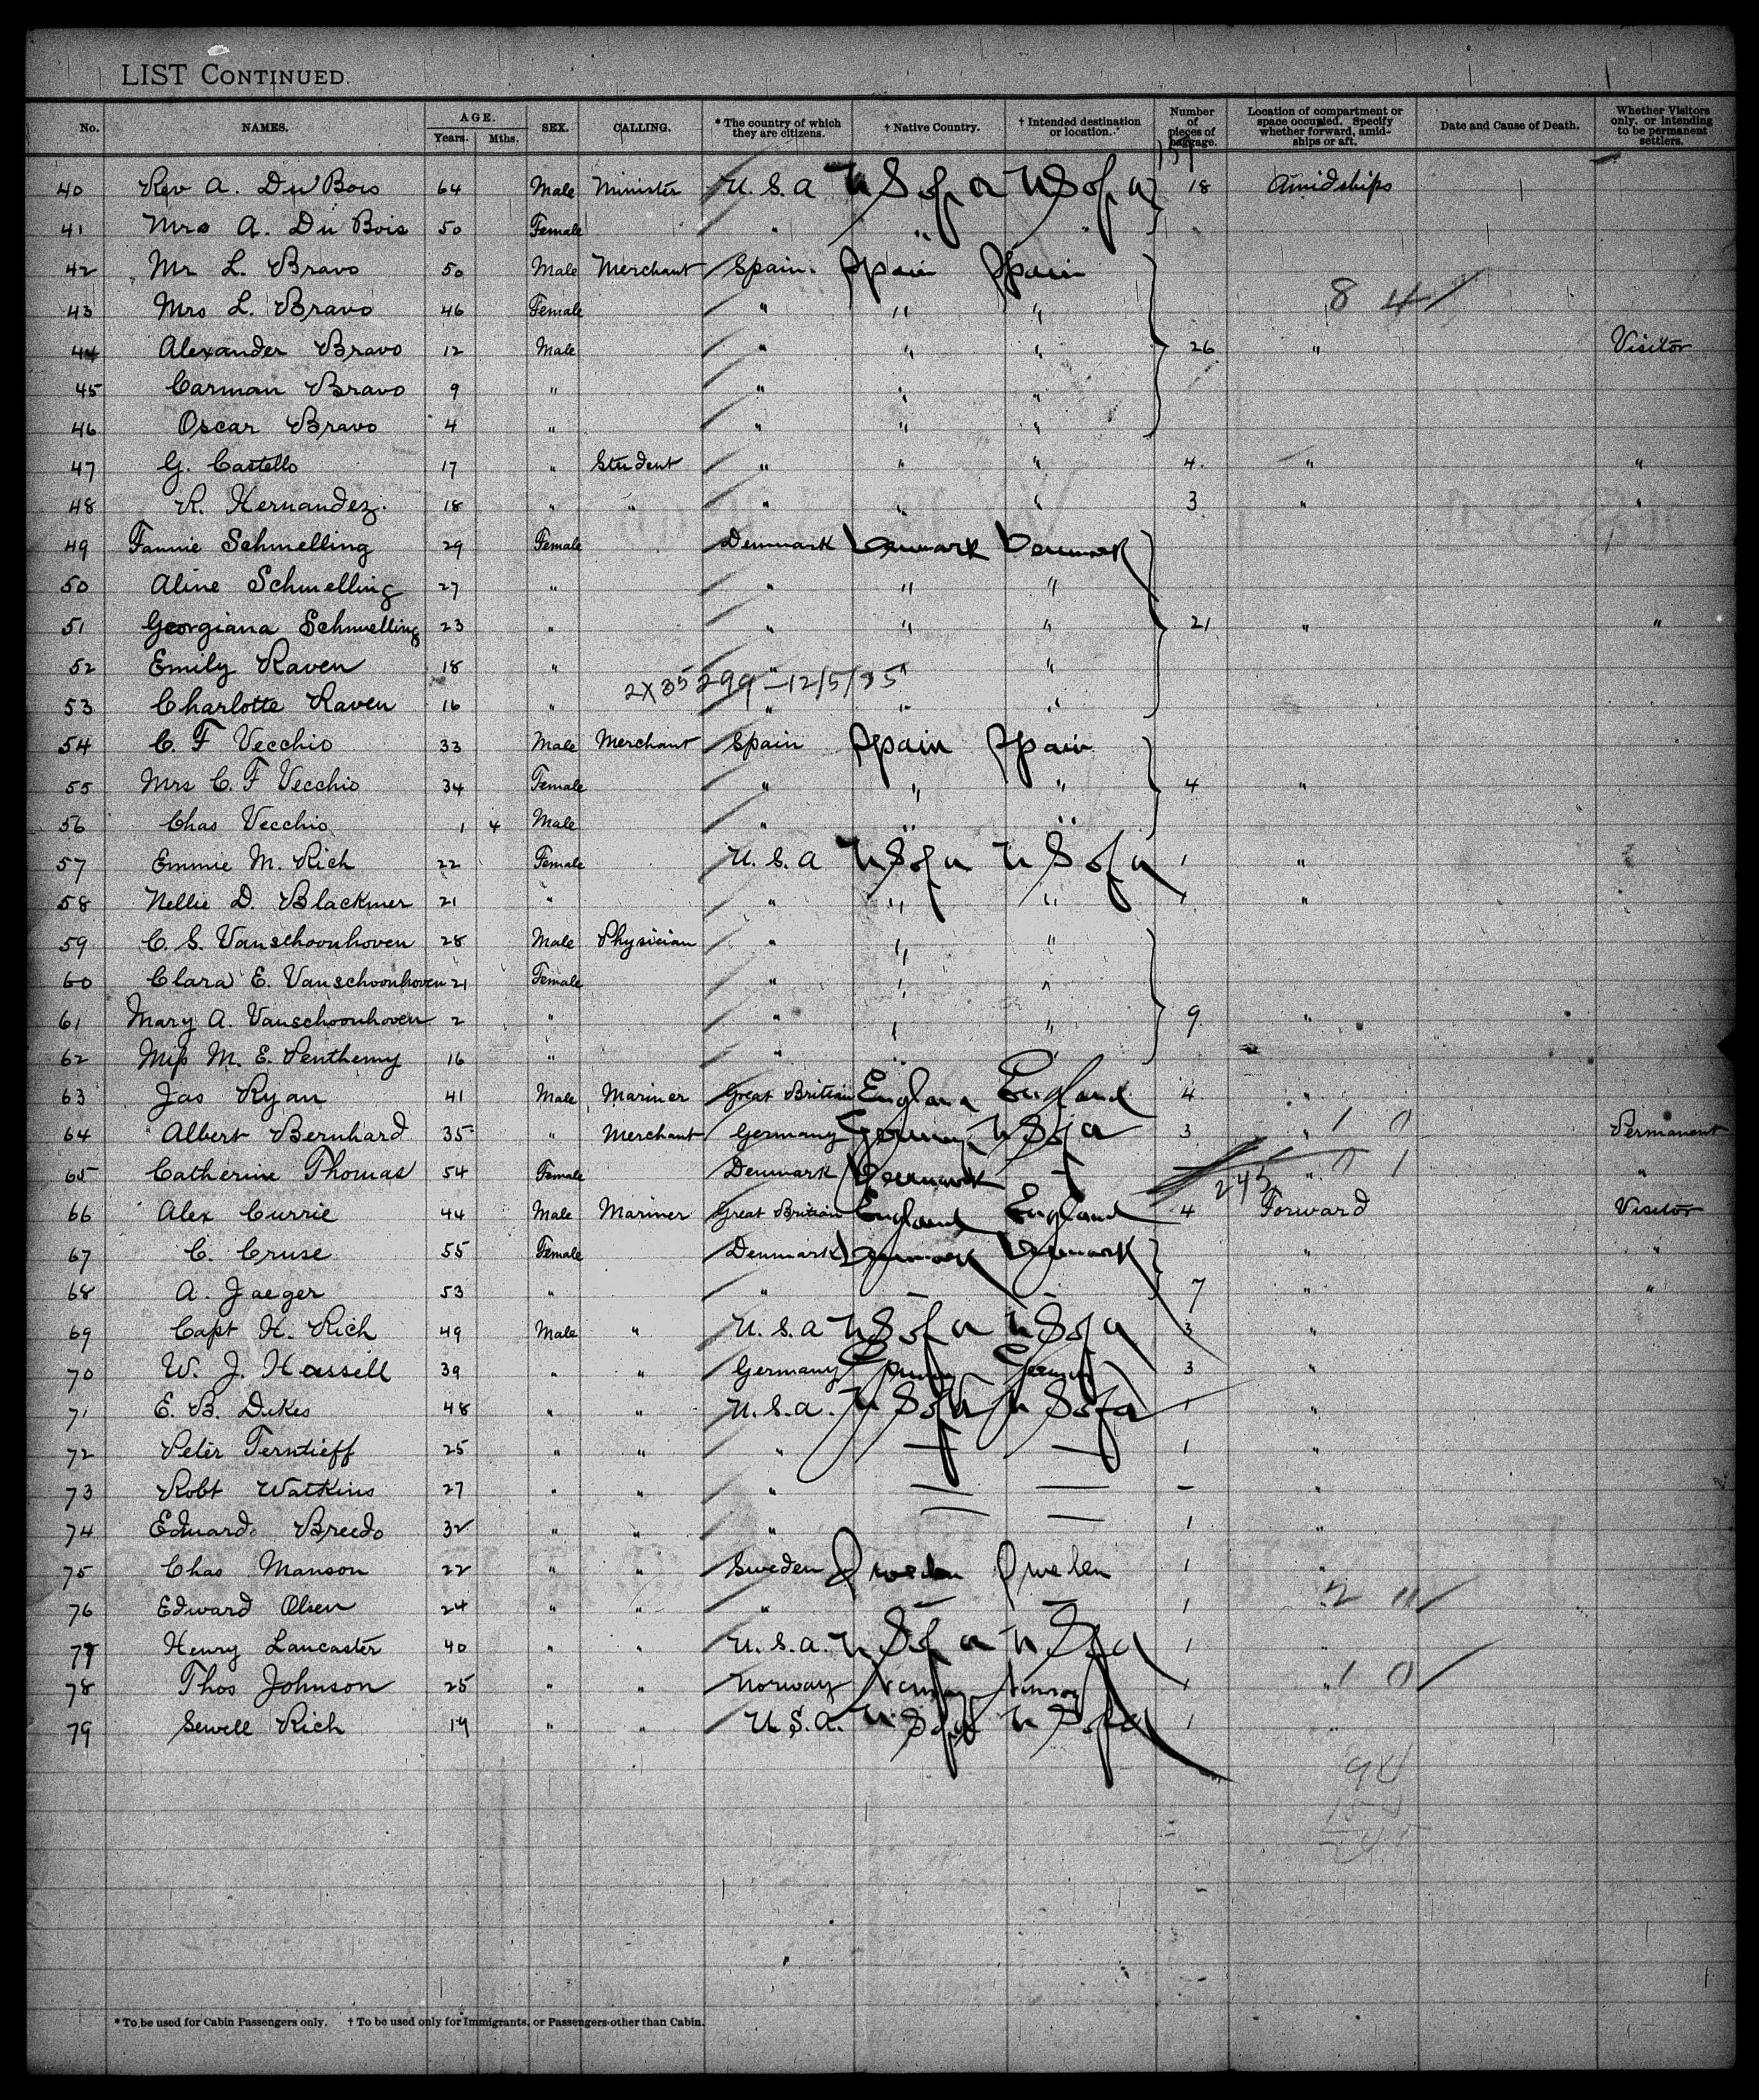 LIST CONTINUED.
No. NAMES. AGE. Years. Mths. SEX. CALLING. * The country of which they are citizens. † Native Country. † Intended destination or location. Number of pieces of baggage. Location of compartment or space occupied. Specify whether forward, amidships or aft. Date and Cause of Death. Whether Visitors only, or intending to be permanent settlers.
40 Rev A. Du Bois 64 Male Minister U.S.A U S of A U S of A 18 Amidships
41 Mrs A. Du Bois 50 Female " " "
42 Mr L. Bravo 50 Male Merchant Spain Spain Spain
43 Mrs L. Bravo 46 Female " " " 8 4
44 Alexander Bravo 12 Male " " " 26 " Visitor
45 Carman Bravo 9 " " " "
46 Oscar Bravo 4 " " " "
47 G. Castello 17 " Student " " " 4 " "
48 R. Hernandez. 18 " " " " " 3 " "
49 Fannie Schmelling 29 Female Denmark Denmark Denmark
50 Aline Schmelling 27 " " " "
51 Georgiana Schmelling 23 " " " " 21 " "
52 Emily Raven 18 " " " "
2X35299-12/5/35
53 Charlotte Raven 16 " " " "
54 C. F Vecchio 33 Male Merchant Spain Spain Spain
55 Mrs C. F Vecchio 34 Female " " " 4 "
56 Chas Vecchio 1 4 Male " " "
57 Emmie M. Rich 22 Female U.S.A U S of A U S of A 1 "
58 Nellie D. Blackmer 21 " " " " 1 "
59 C. S. Vanschoonhoven 28 Male Physician " " "
60 Clara E. Vanschoonhoven 21 Female " " "
61 Mary A. Vanschoonhoven 2 " " " " 9 "
62 Miss M. E. Penthemy 16 " " " "
63 Jas Ryan 41 Male Mariner Great Britian England England 4 "
64 Albert Bernhard 35 " Merchant Germany Germany U S of A 3 " 1 0 Permanent
65 Catherine Thomas 54 Female Denmark Denmark " 0 1 "
243
66 Alex Currie 44 Male Mariner Great Britian England England 4 Forward Visitor
67 C. Cruse 55 Female Denmark Denmark Denmark " "
68 A. Jaeger 53 " " 7 " "
69 Capt H. Rich 49 Male " U.S.A U S of A U S of A 3 "
70 W. J. Hassell 39 " " Germany Germany Germany 3 "
71 E. B. Dukes 48 " " U.S.A. U S of A U S of A 1 "
72 Peter Terntieff 25 " " " 1 "
73 Robt Watkins 27 " " " - "
74 Eduardo Breedo 32 " " " 1 "
75 Chas Manson 22 " " Sweden Sweden Sweden 1 "
76 Edward Olsen 24 " " " 1 2 11
77 Henry Lancaster 40 " " U.S.A. U S of A U S of A 1 "
78 Thos Johnson 25 " " Norway Norway Norway 1 " 1 0
79 Sewell Rich 19 " " U.S.A. U S of A U S of A 1 "
* To be used for Cabin Passengers only. † To be used only for Immigrants, or Passengers other than Cabin.